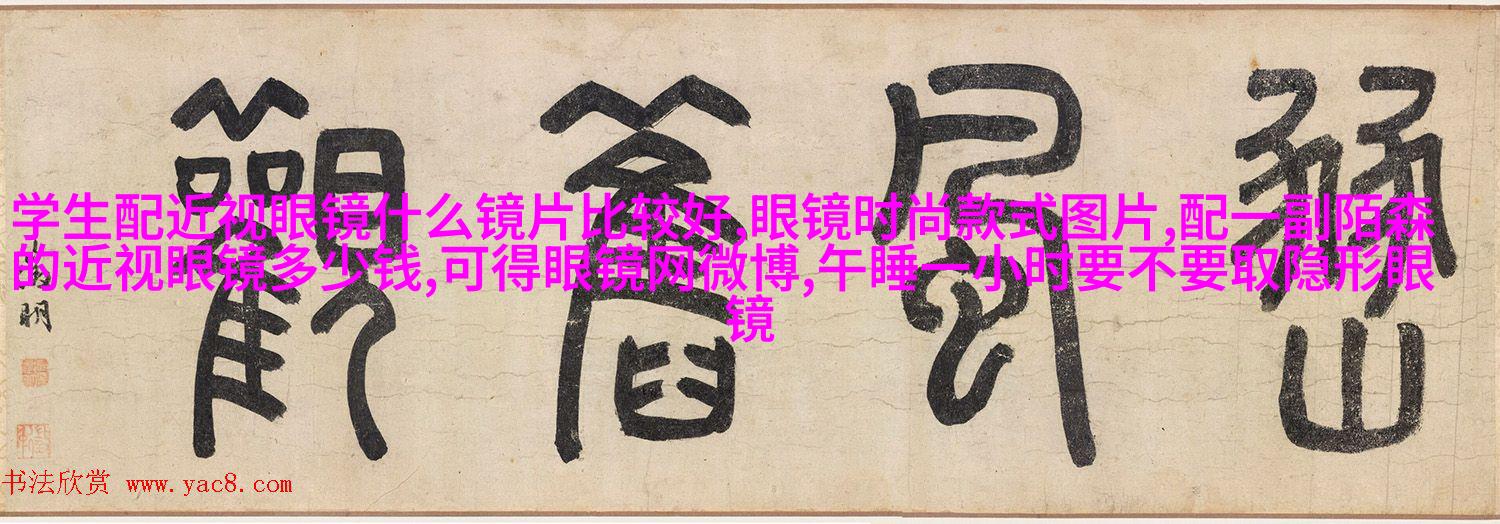 豳風舊觀
明
学生配近视眼镜什么镜片比较好,眼镜时尚款式图片,配一副陌森
的近视眼镜多少钱,可得眼镜网微博,午睡一小时要不要取隐形眼
镜
书法欣赏 www.yac8.com